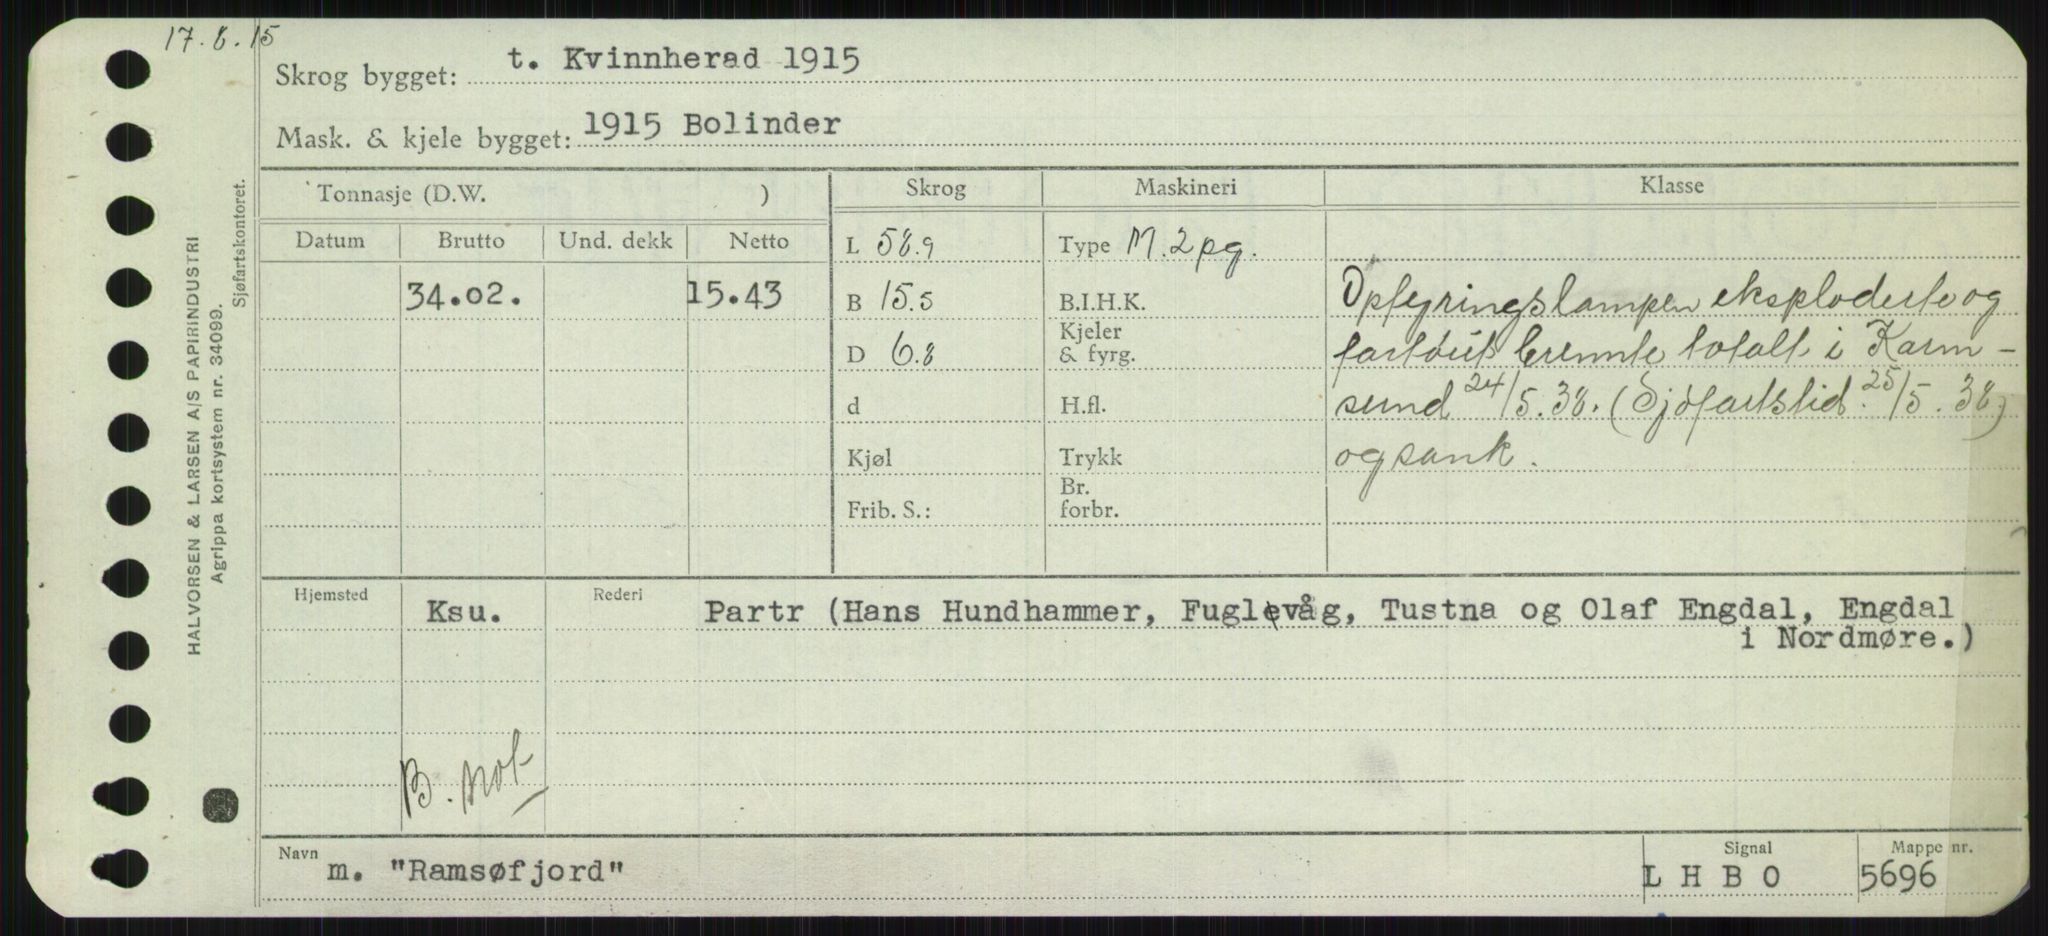 17.8.15
Skrog bygget: t. Kvinnherad 1915
Mask. & kjele bygget: 1915 Bolinder
Tonnasje (D.W. ) Skrog Maskineri Klasse
Datum Brutto Und. dekk Netto
34.02. 15.43
L 58.9
B 15.5
D 6.8
d
Kjøl
Frib. S.:
Type M.2pg.
B.I.H.K.
Kjeler
& fyrg.
H.fl.
Trykk
Br.
forbr.
Opfyringslampen eksploderte og
fartöiet brennte totalt i Karm-
sund 24/5.38. (Sjöfartstid. 25/5.38)
og sank.
Hjemsted Ksu. Rederi Partr (Hans Hundhammer, Fuglevåg, Tustna og Olaf Engdal, Engdal
i Nordmøre.)
B. not
Navn m. "Ramsøfjord" Signal L H B O Mappe nr. 5696
HALVORSEN & LARSEN A/S PAPIRINDUSTRI
Agrippa kortsystem nr. 34099.
Sjøfartskontoret.